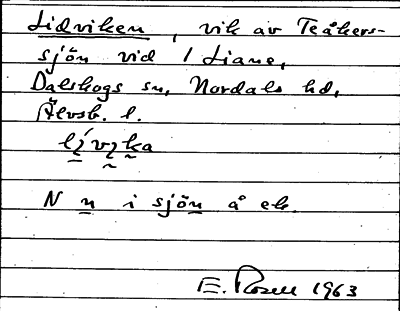 Lidviken, vik av Teåkers-
sjön vid 1 Liane,
Dalskogs sn, Nordals hd,
Älvsb. l.
N n i sjön å ek.
E. Rosell 1963